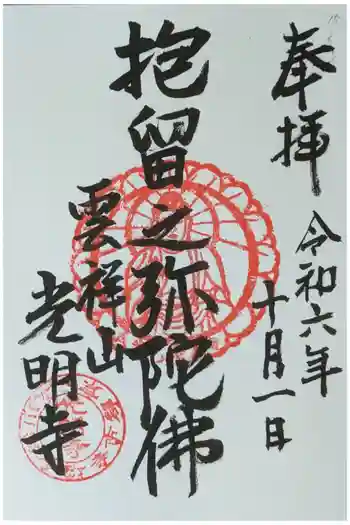 奉拝
令和六年
十月一日
抱留之弥陀佛
雲祥山
光明寺